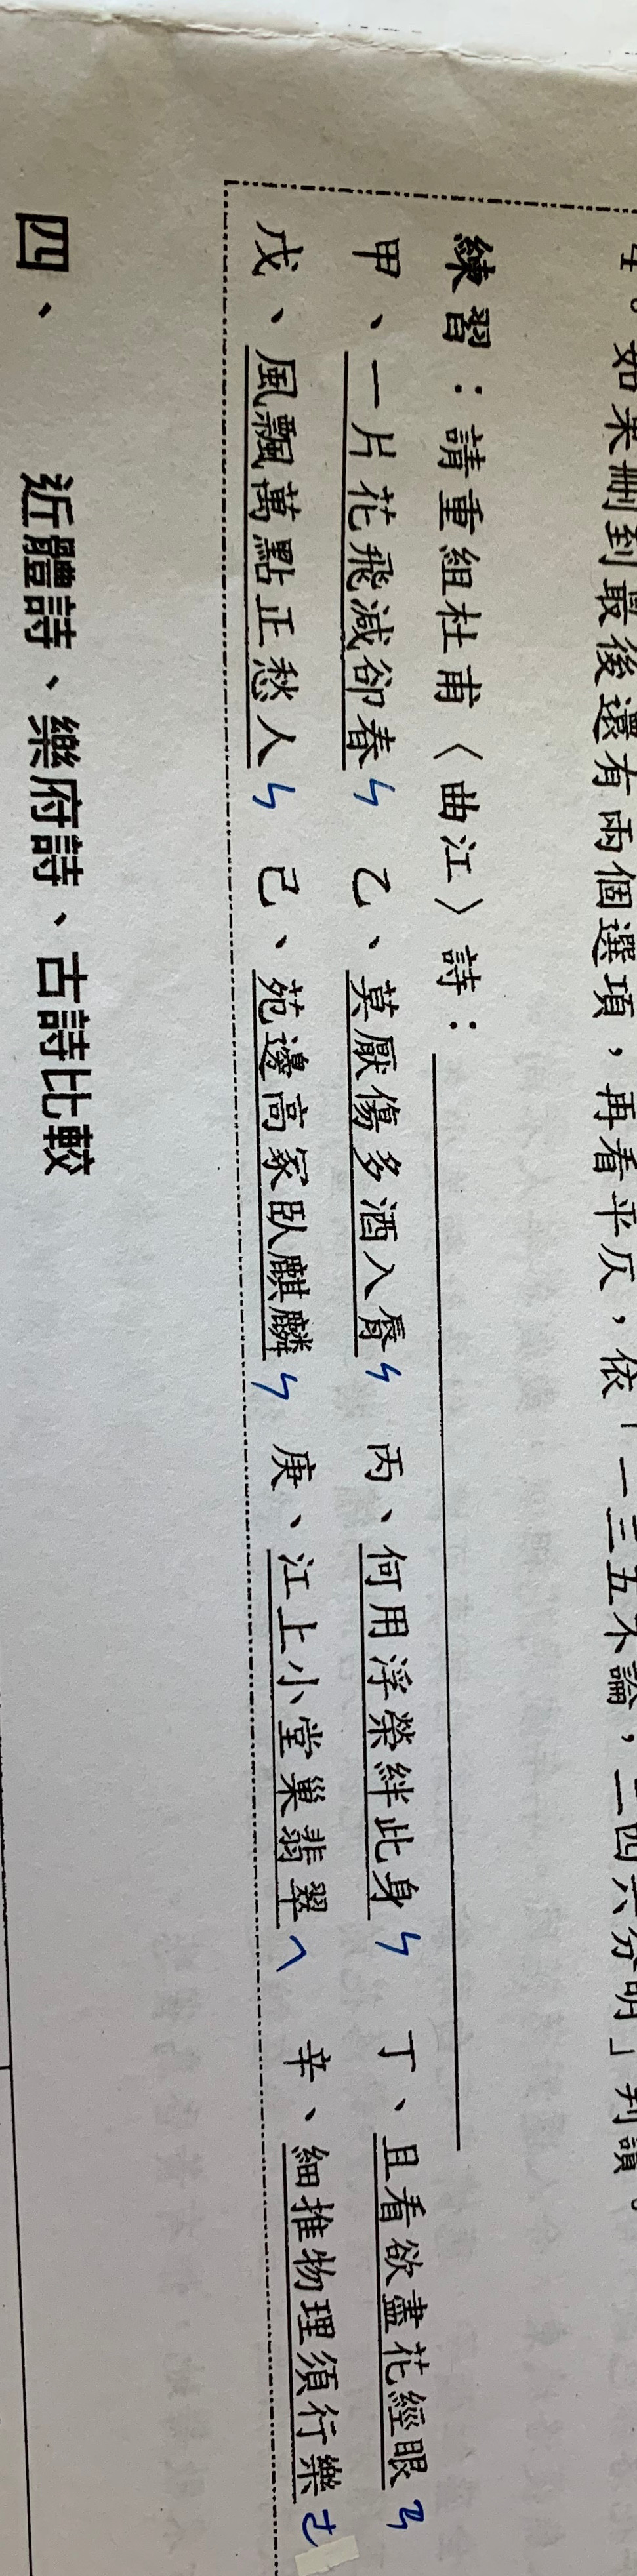 。如果刪到最後還有兩個選項，再看平仄，依「一三五不論，二四六分明」判讀。
練習：請重組杜甫〈曲江〉詩：
甲、一片花飛減卻春ㄣ 乙、莫厭傷多酒入脣ㄣ 丙、何用浮榮絆此身ㄣ 丁、且看欲盡花經眼ㄢ
戊、風飄萬點正愁人ㄣ 己、苑邊高冢臥麒麟ㄣ 庚、江上小堂巢翡翠ㄟ 辛、細推物理須行樂ㄜ
四、 近體詩、樂府詩、古詩比較